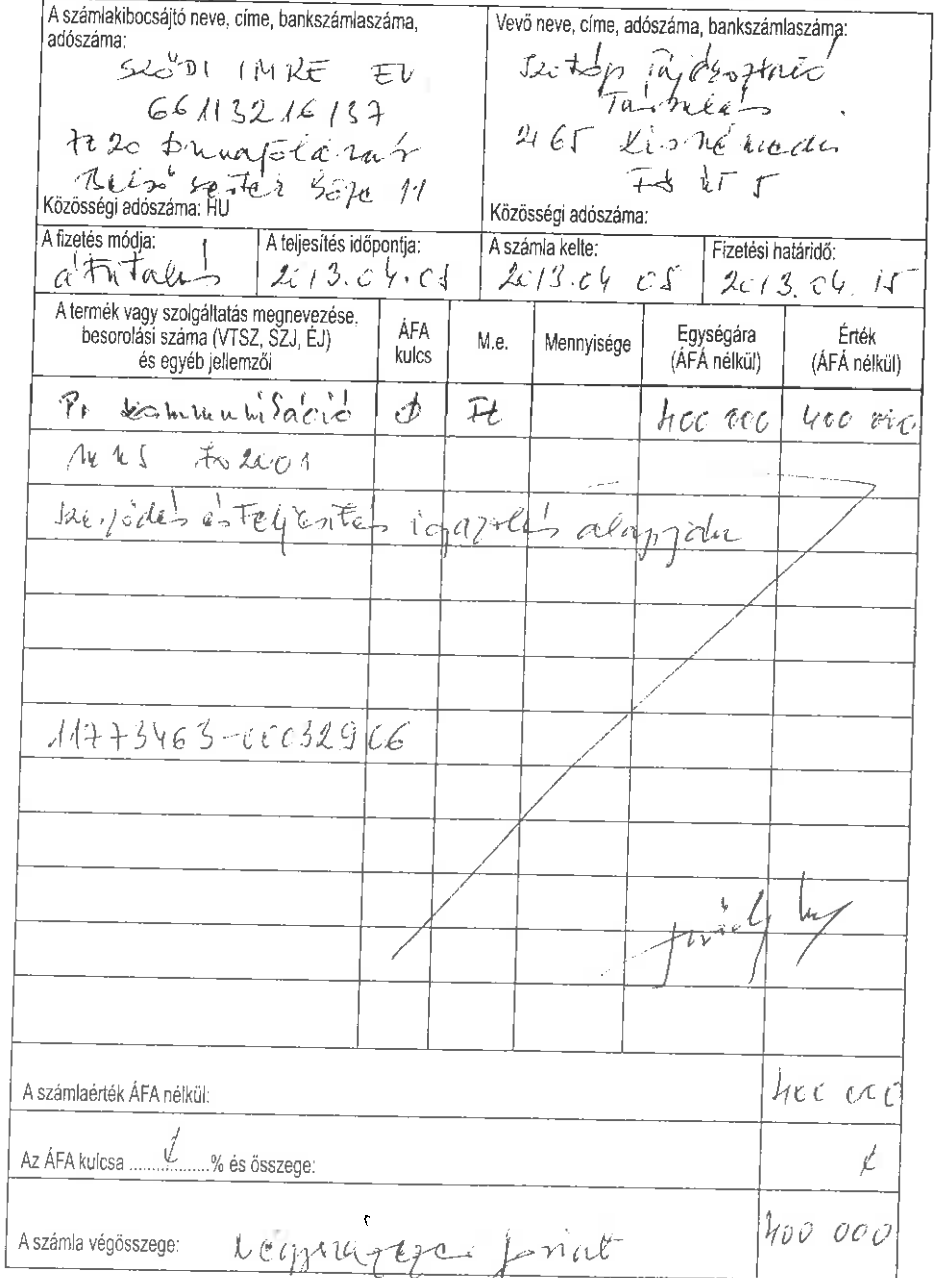 A számlakibocsájtó neve, címe, bankszámlaszáma,
adószáma:
SZŐDI IMRE EV
66113216/37
7220
11
Közösségi adószáma: HU
Vevő neve, címe, adószáma, bankszámlaszáma:
Társulás
5
Közösségi adószáma:
A fizetés módja:
átutalás
A teljesítés időpontja:
2013.04.05
A számla kelte:
2013.04 05
Fizetési határidő:
2013.04.15
A termék vagy szolgáltatás megnevezése,
besorolási száma (VTSZ, SZJ, ÉJ)
és egyéb jellemzői
ÁFA
kulcs
M.e.
Mennyisége
Egységára
(ÁFÁ nélkül)
Érték
(ÁFÁ nélkül)
Pr kommunikáció Ft 400 000 400 000
szerződés és teljesítés igazolás alapján
11773463-00032906
A számlaérték ÁFA nélkül: 400 000
Az ÁFA kulcsa ..........% és összege:
A számla végösszege: Négyszázezer forint 400 000